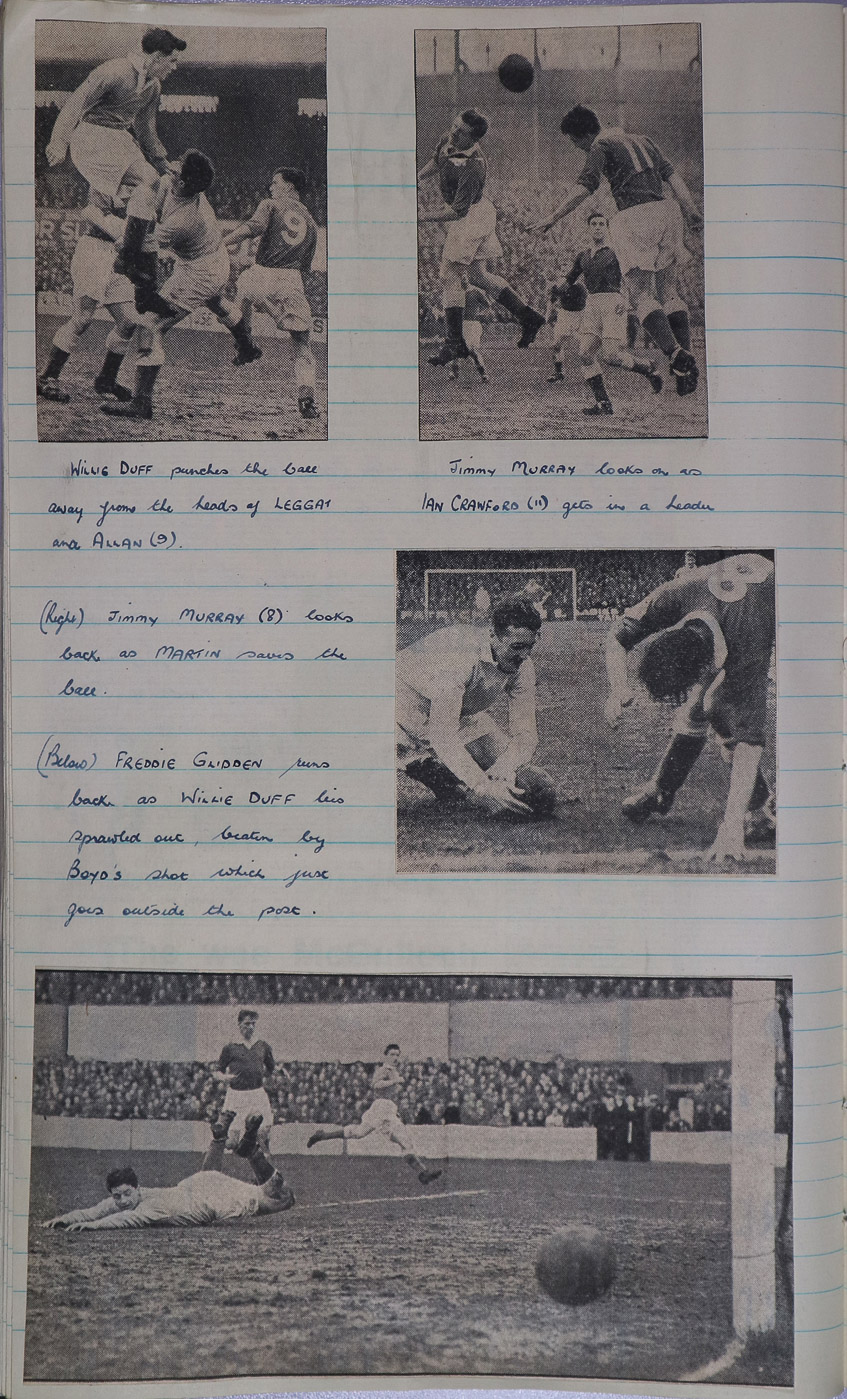 9
11
WILLIE DUFF punches the ball
away from the heads of LEGGAT
and ALLAN (9).
Jimmy MURRAY looks on as
IAN CRAWFORD (11) gets in a header
(Right) Jimmy MURRAY (8) looks
back as MARTIN saves the
ball.
8
(Below) FREDDIE GLIDDEN runs
back as WILLIE DUFF lies
sprawled out, beaten by
BOYD'S shot which just
goes outside the post.